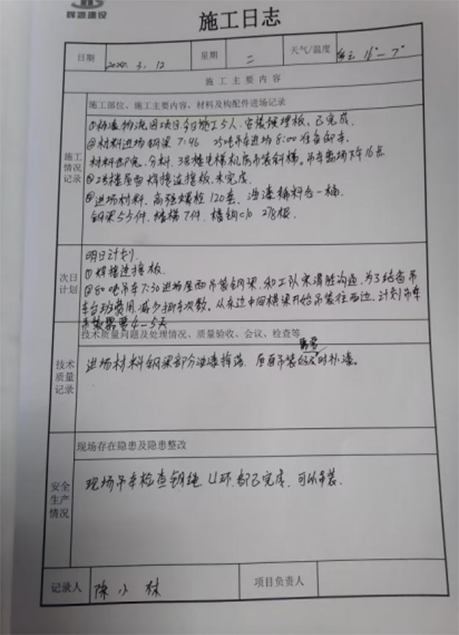 辉源建设
施工日志
日期 2024. 3. 12 星期 二 天气/温度
施工主要内容
施工情况记录
施工部位、施工主要内容、材料及构配件进场记录
物流园项目今日施工5人,安装预埋板,已完成
②材料进场钢梁7:46 25吨吊车8:00准备卸车
材料卸完,分料,3#楼电梯机房吊装斜梯。吊车离场下午16点
楼屋面焊接连接板,未完成
进场材料,高强螺栓120套、油漆稀料各一桶
钢梁55件,墙檩7件,檩钩 278根
次日计划
明日计划
①焊接连接板
②80吨吊车7:30进场屋面吊装钢梁,和工队宋清胜沟通,为了结省吊
车台班费用,减少挪车次数。从东边中间横梁开始吊装往西边,计划吊车
4-5天
技术质量记录
技术质量问题及处理情况、质量验收、会议、检查等
进场材料钢梁部分油漆掉落,后面吊装 及时补漆。
安全生产情况
现场存在隐患及隐患整改
现场吊车检查钢绳、U环,都已完成,可以吊装.
记录人 陈小林 项目负责人